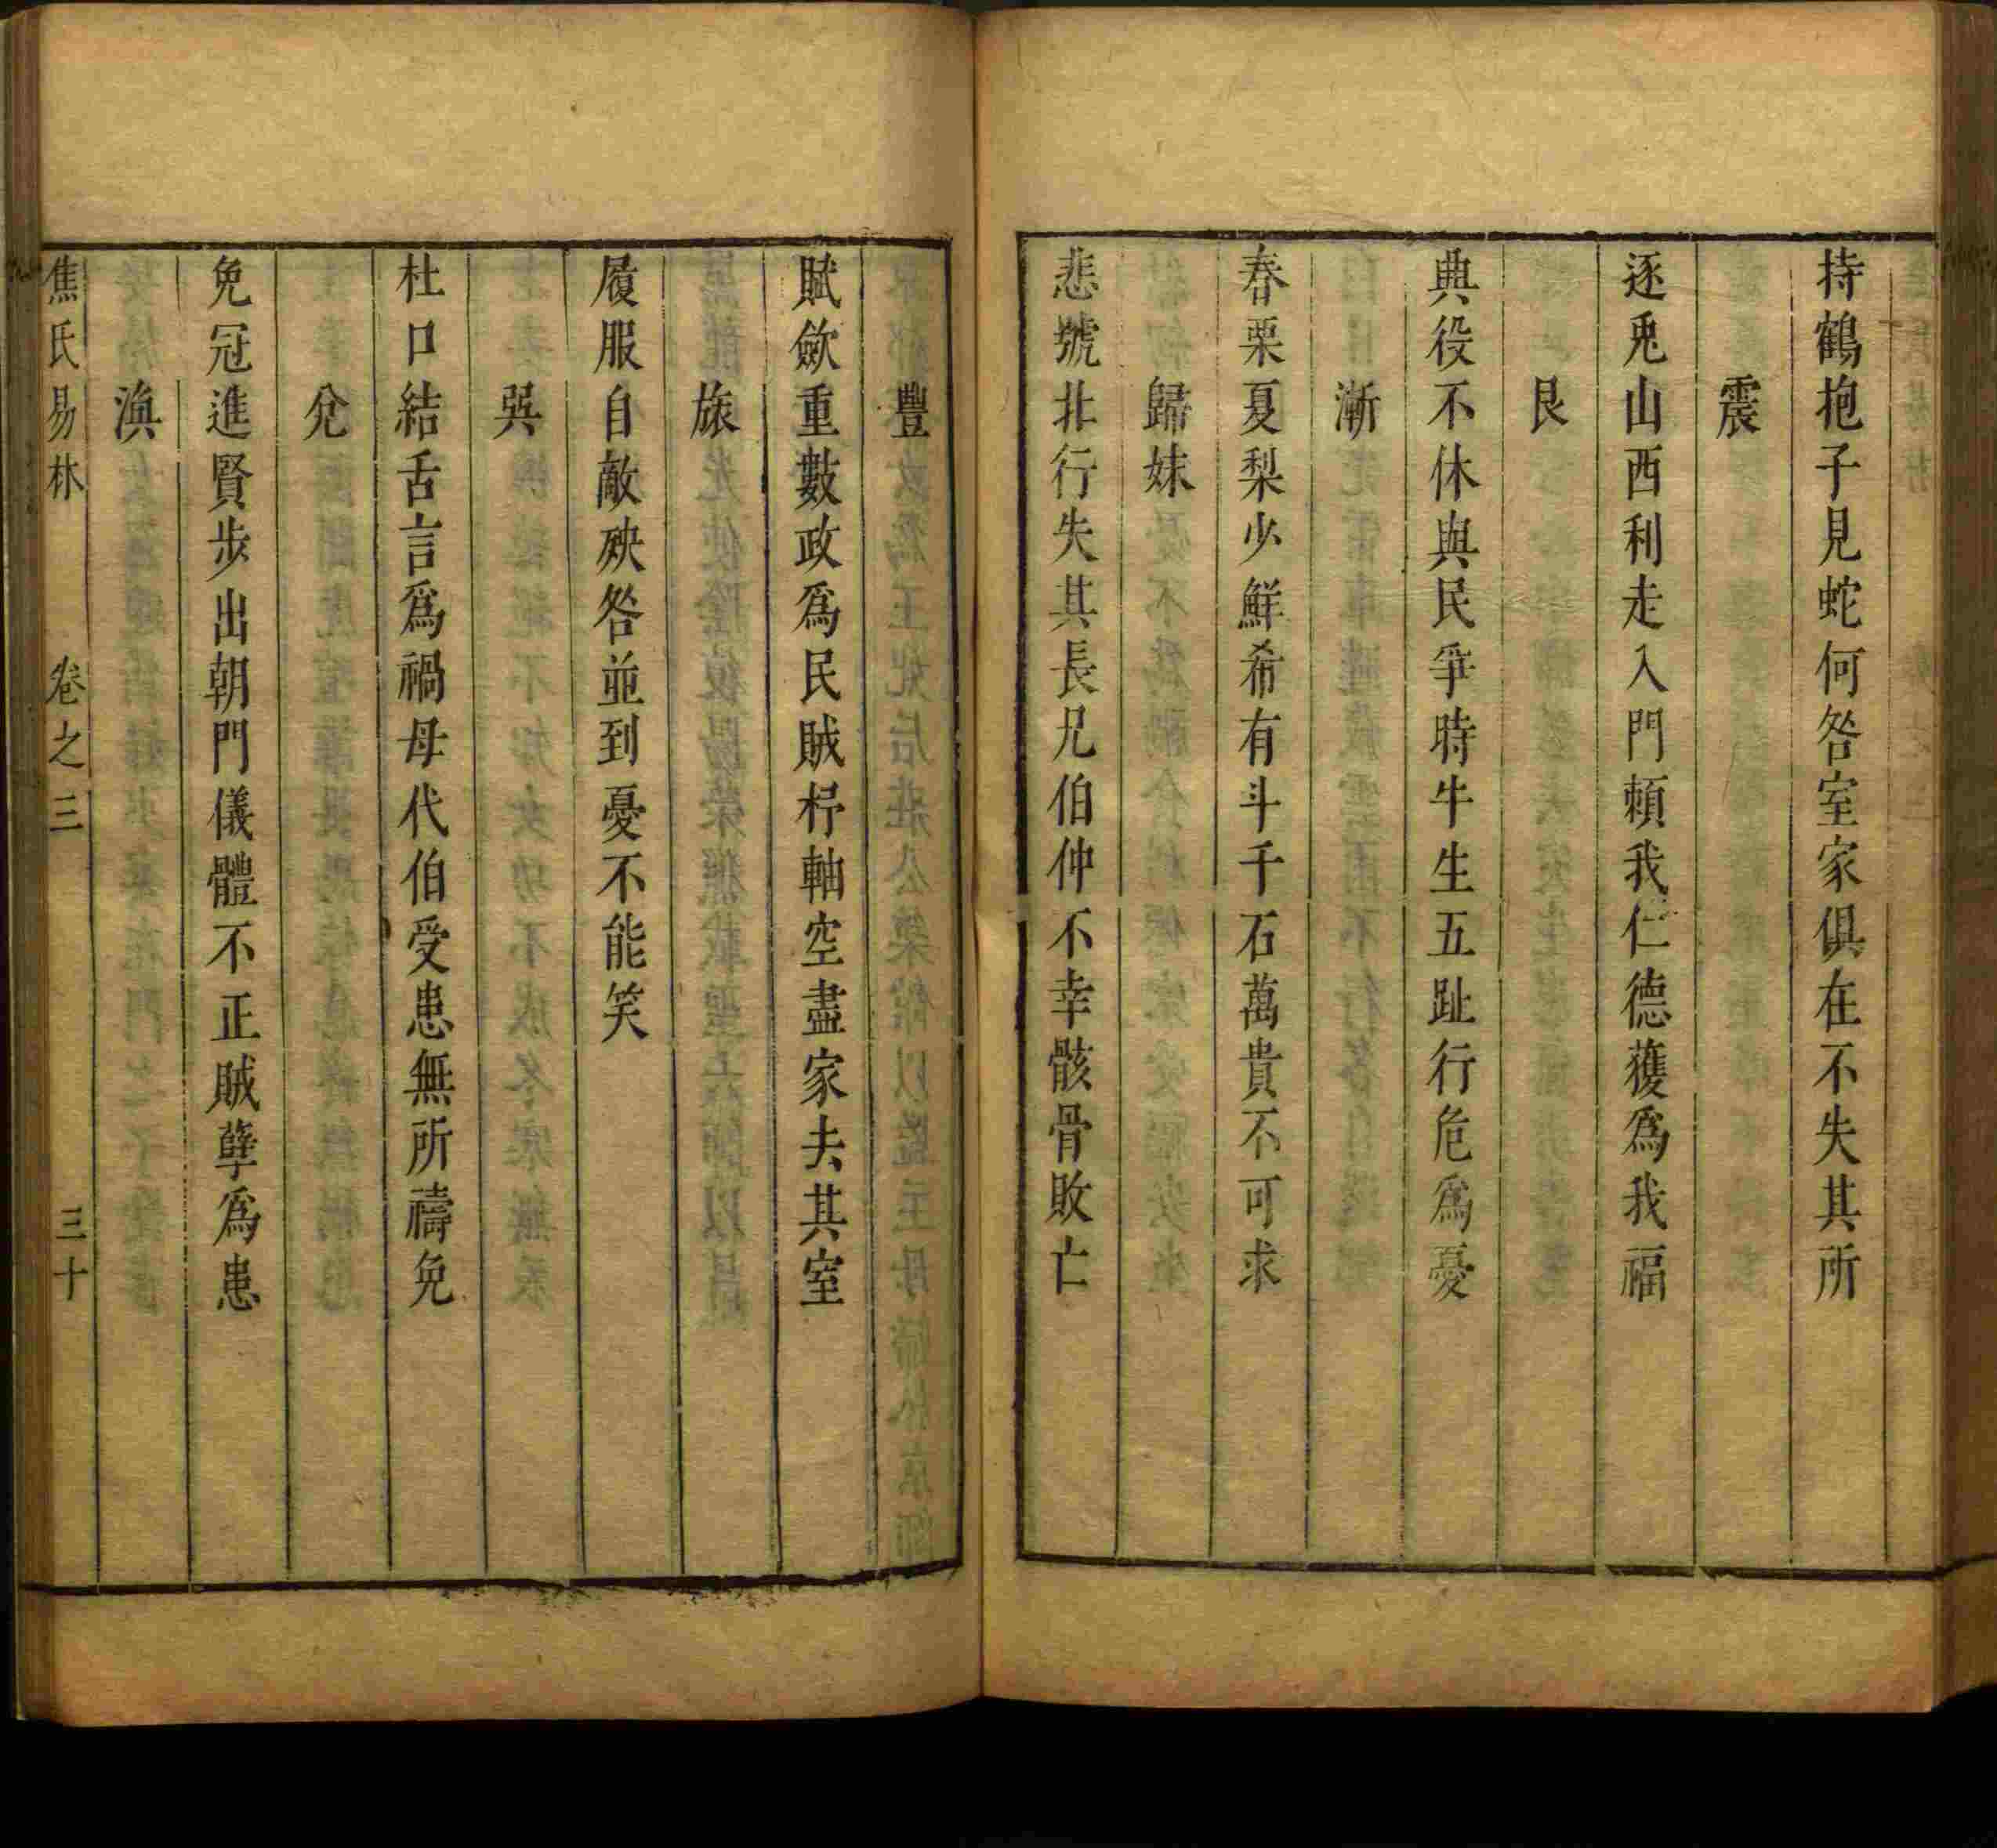 持鶴抱子見蛇何咎室家俱在不失其所
震
逐兎山西利走入門頼我仁德獲爲我福
艮
典役不休與民爭時牛生五趾行危爲憂
漸
春栗夏梨少鮮希有斗千石萬貴不可求
歸妹
悲號北行失其長兄伯仲不幸骸骨敗亡
豐
賦歛重數政爲民賊杼軸空盡家去其室
旅
履服自敵殃咎並到憂不能笑
巽
杜口結舌言爲禍母代伯受患無所禱免
兌
免冠進賢步出朝門儀體不正賊孽爲患
渙
焦氏易林 卷之三 三十